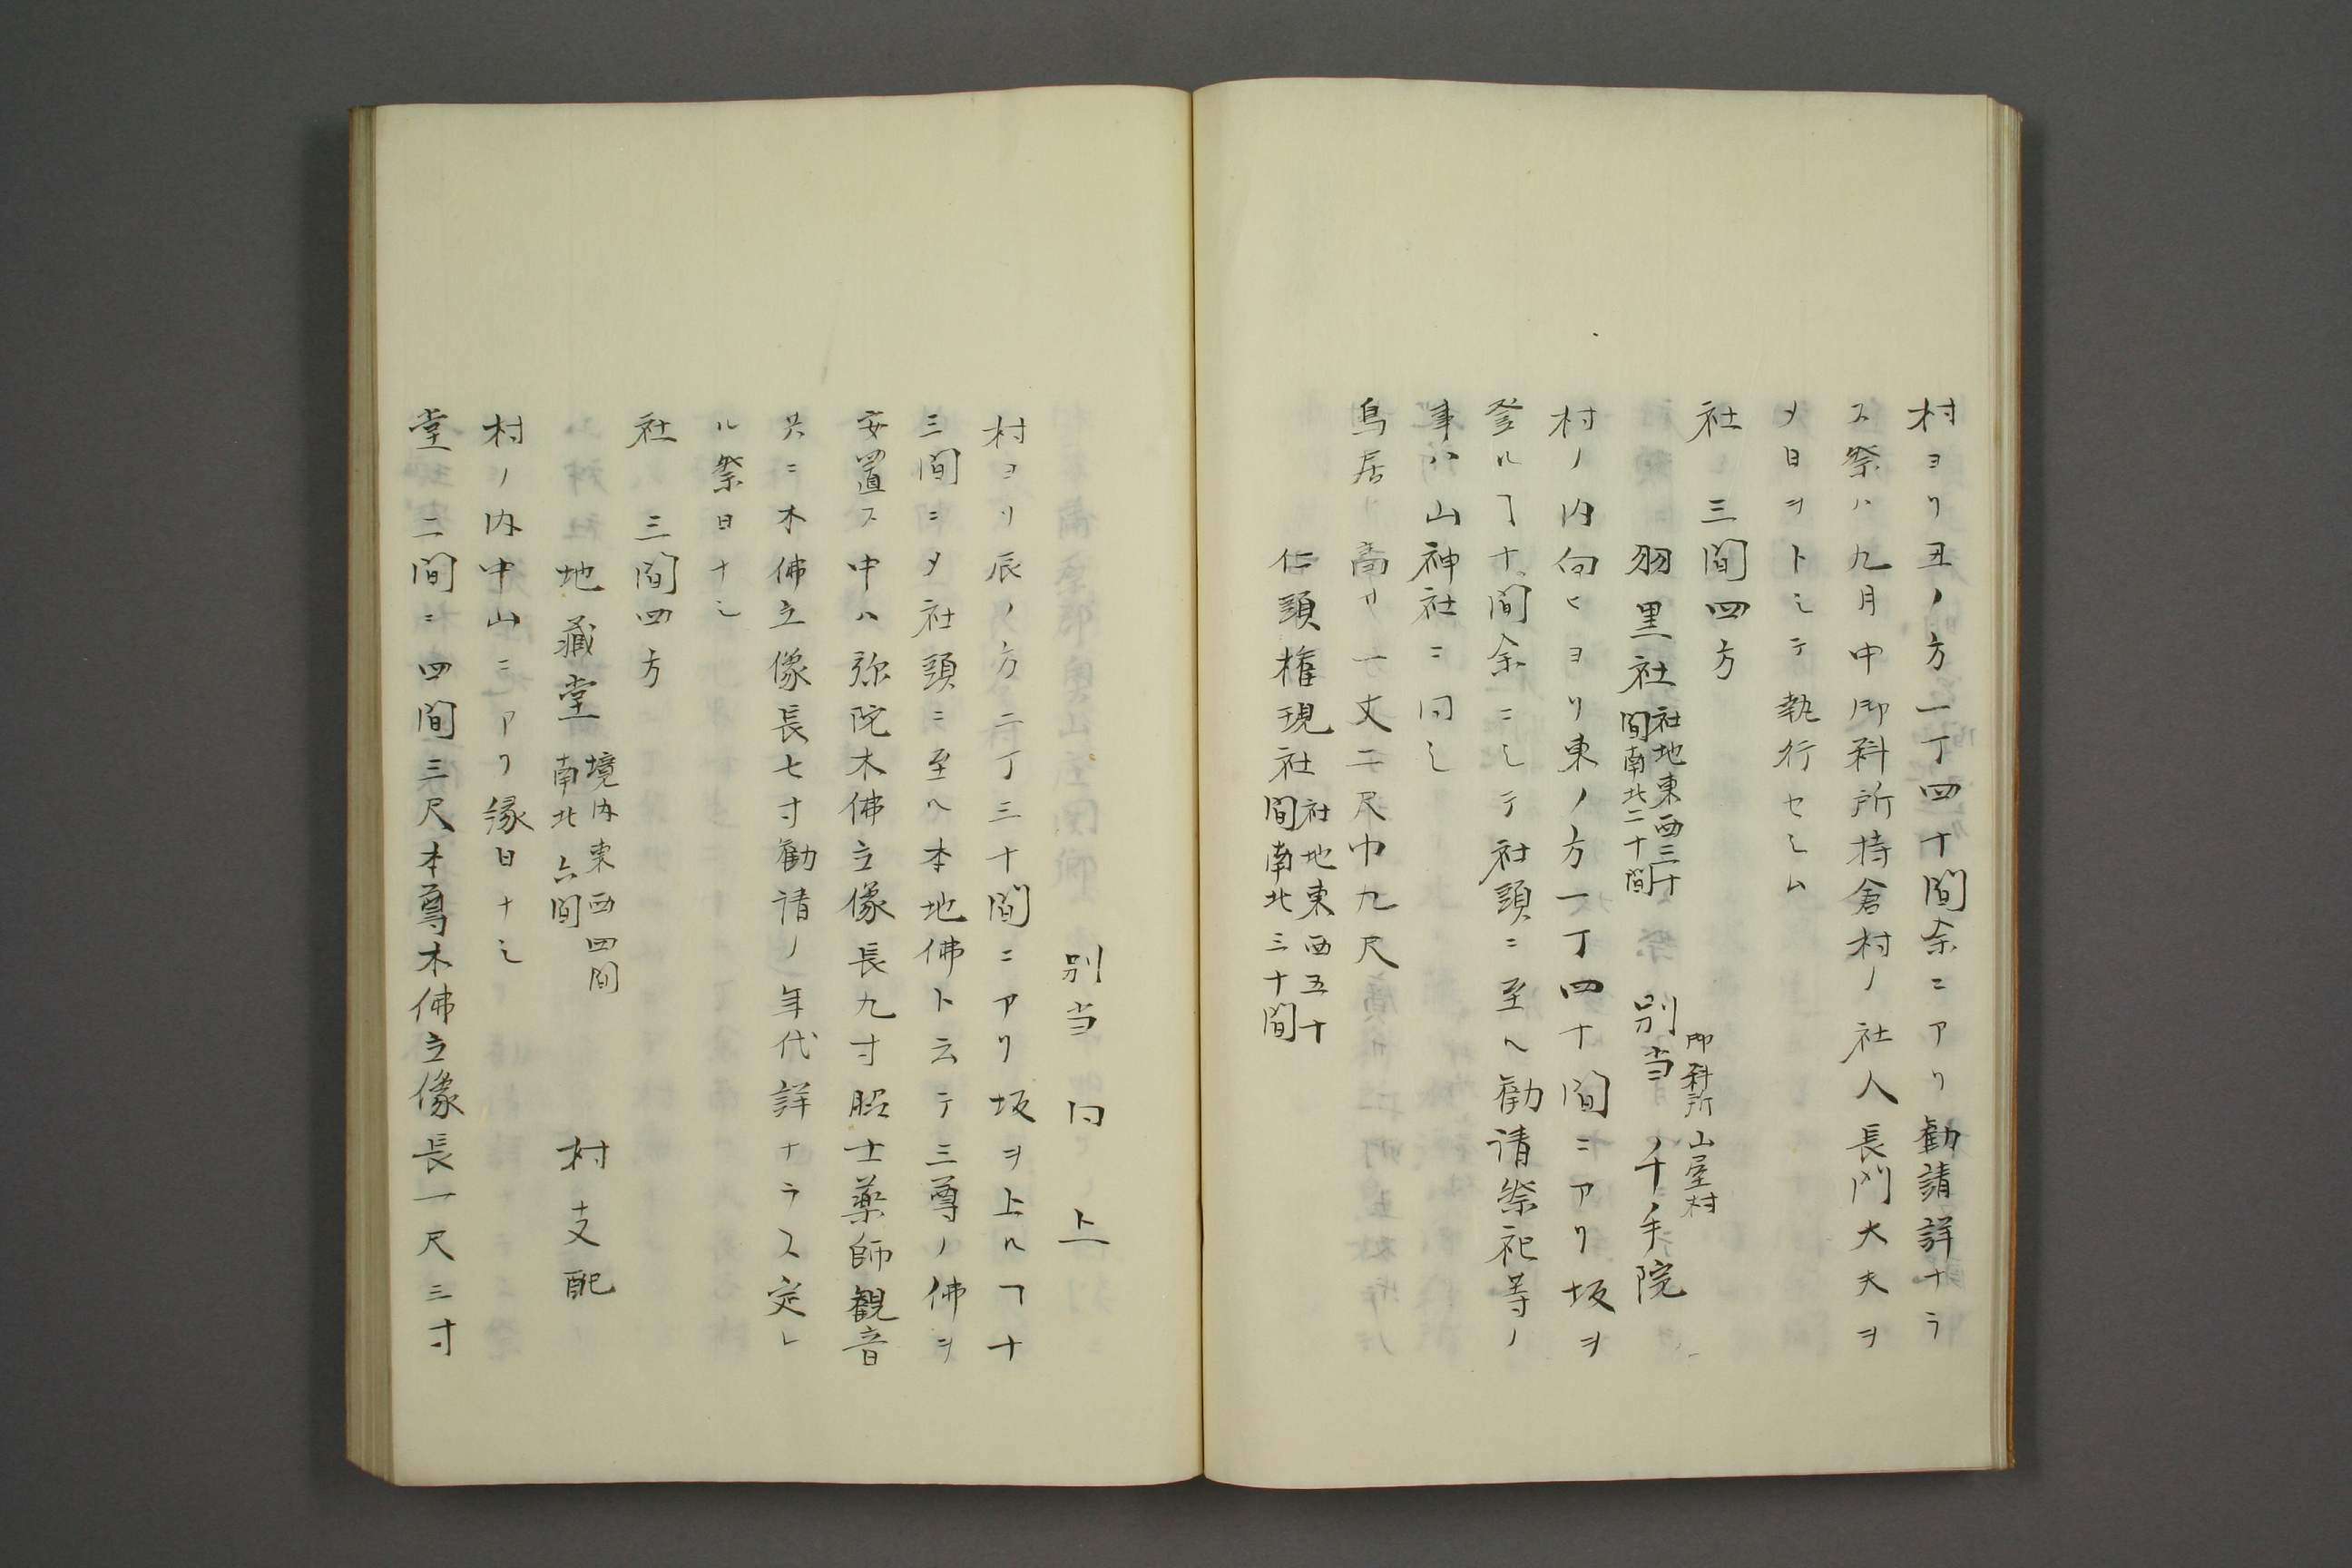 村ヨリ丑ノ方一丁四十間余ニアリ勧請詳ナラ
ス祭ハ九月中御料所持倉村ノ社人長門大夫ヲ
〆日ヲトシテ執行セシム
社　三間四方
羽黒社 社地東西三十
間南北二十間 別当 御料所山屋村
ノ千ノ手院
村ノ内向ヒヨリ東ノ方一丁四十間ニアリ坂ヲ
登ルヿ十間余ニシテ社頭ニ至ヘ勧請祭祀等ノ
事ハ山神社ニ同シ
鳥居リ高サ一丈二尺巾九尺
仁頭権現社 社地東西五十
間南北三十間
別当　同　上
村ヨリ辰ノ方二丁三十間ニアリ坂ヲ上ルヿ十
三間ニ〆社頭ニ至ヘ本地佛ト云テ三尊ノ佛ヲ
安置ス中ハ弥陀木佛立像長九寸脇士薬師観音
共ニ木佛立像長七寸勧請ノ年代詳ナラス定レ
ル祭日ナシ
社　三間四方
地藏堂 境内東西四間
南北六間 村支配
村ノ内中山ニアリ縁日ナシ
堂　二間ニ四間三尺本尊木佛立像長一尺三寸